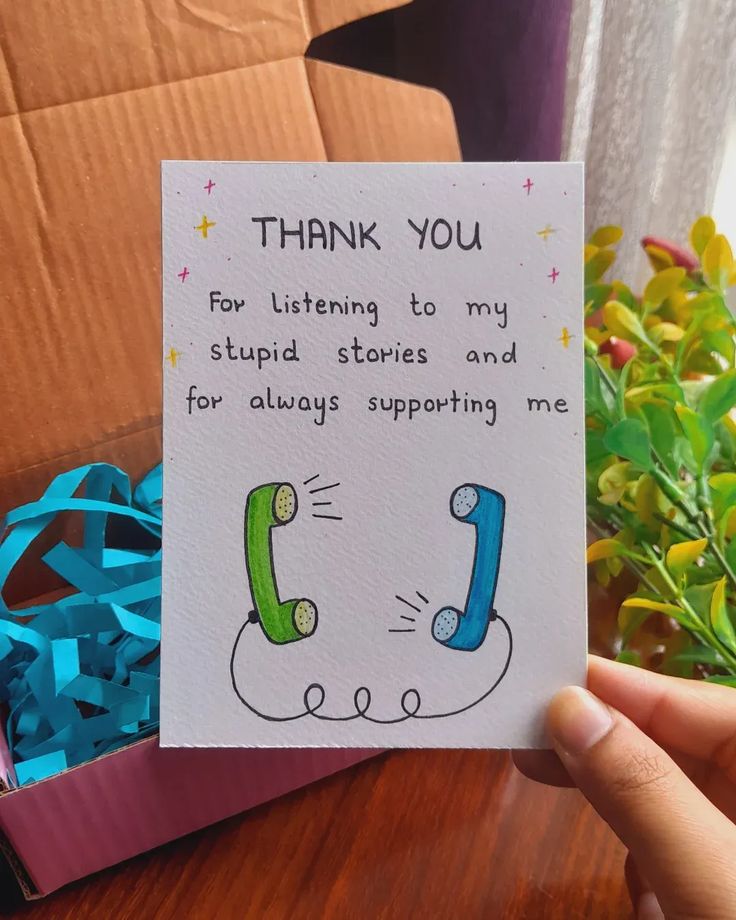 THANK YOU
For listening to my
stupid stories and
for always supporting me